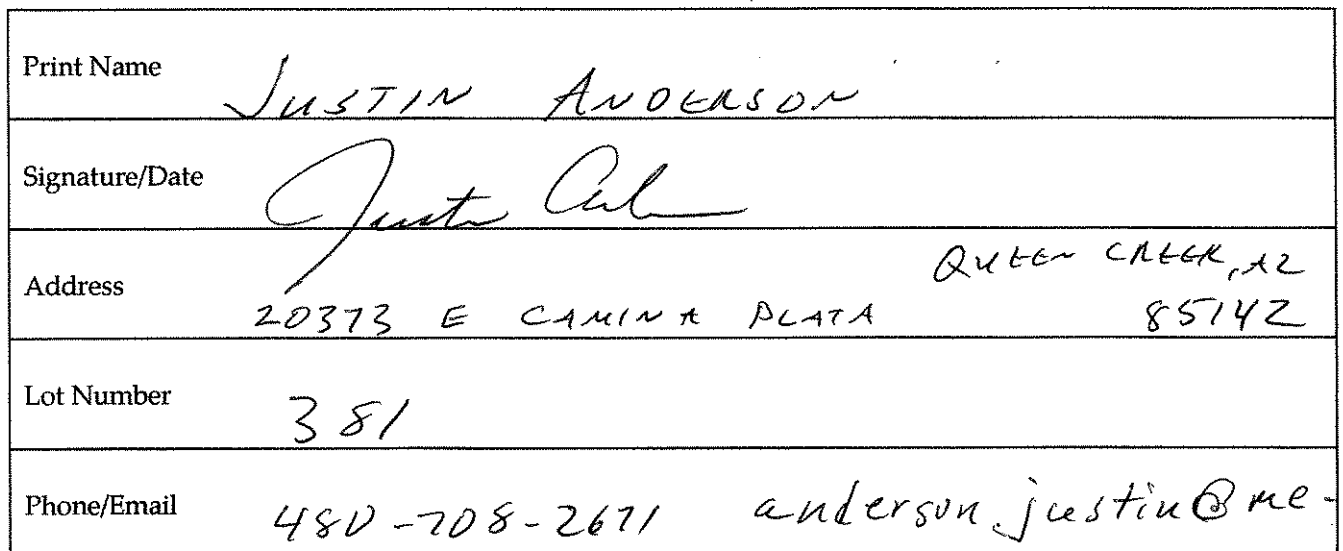 Print Name JUSTIN ANDERSON
Signature/Date
Address 20373 E CAMINA PLATA QUEEN CREEK, AZ 85142
Lot Number 381
Phone/Email 480-708-2671 anderson.justin@me-